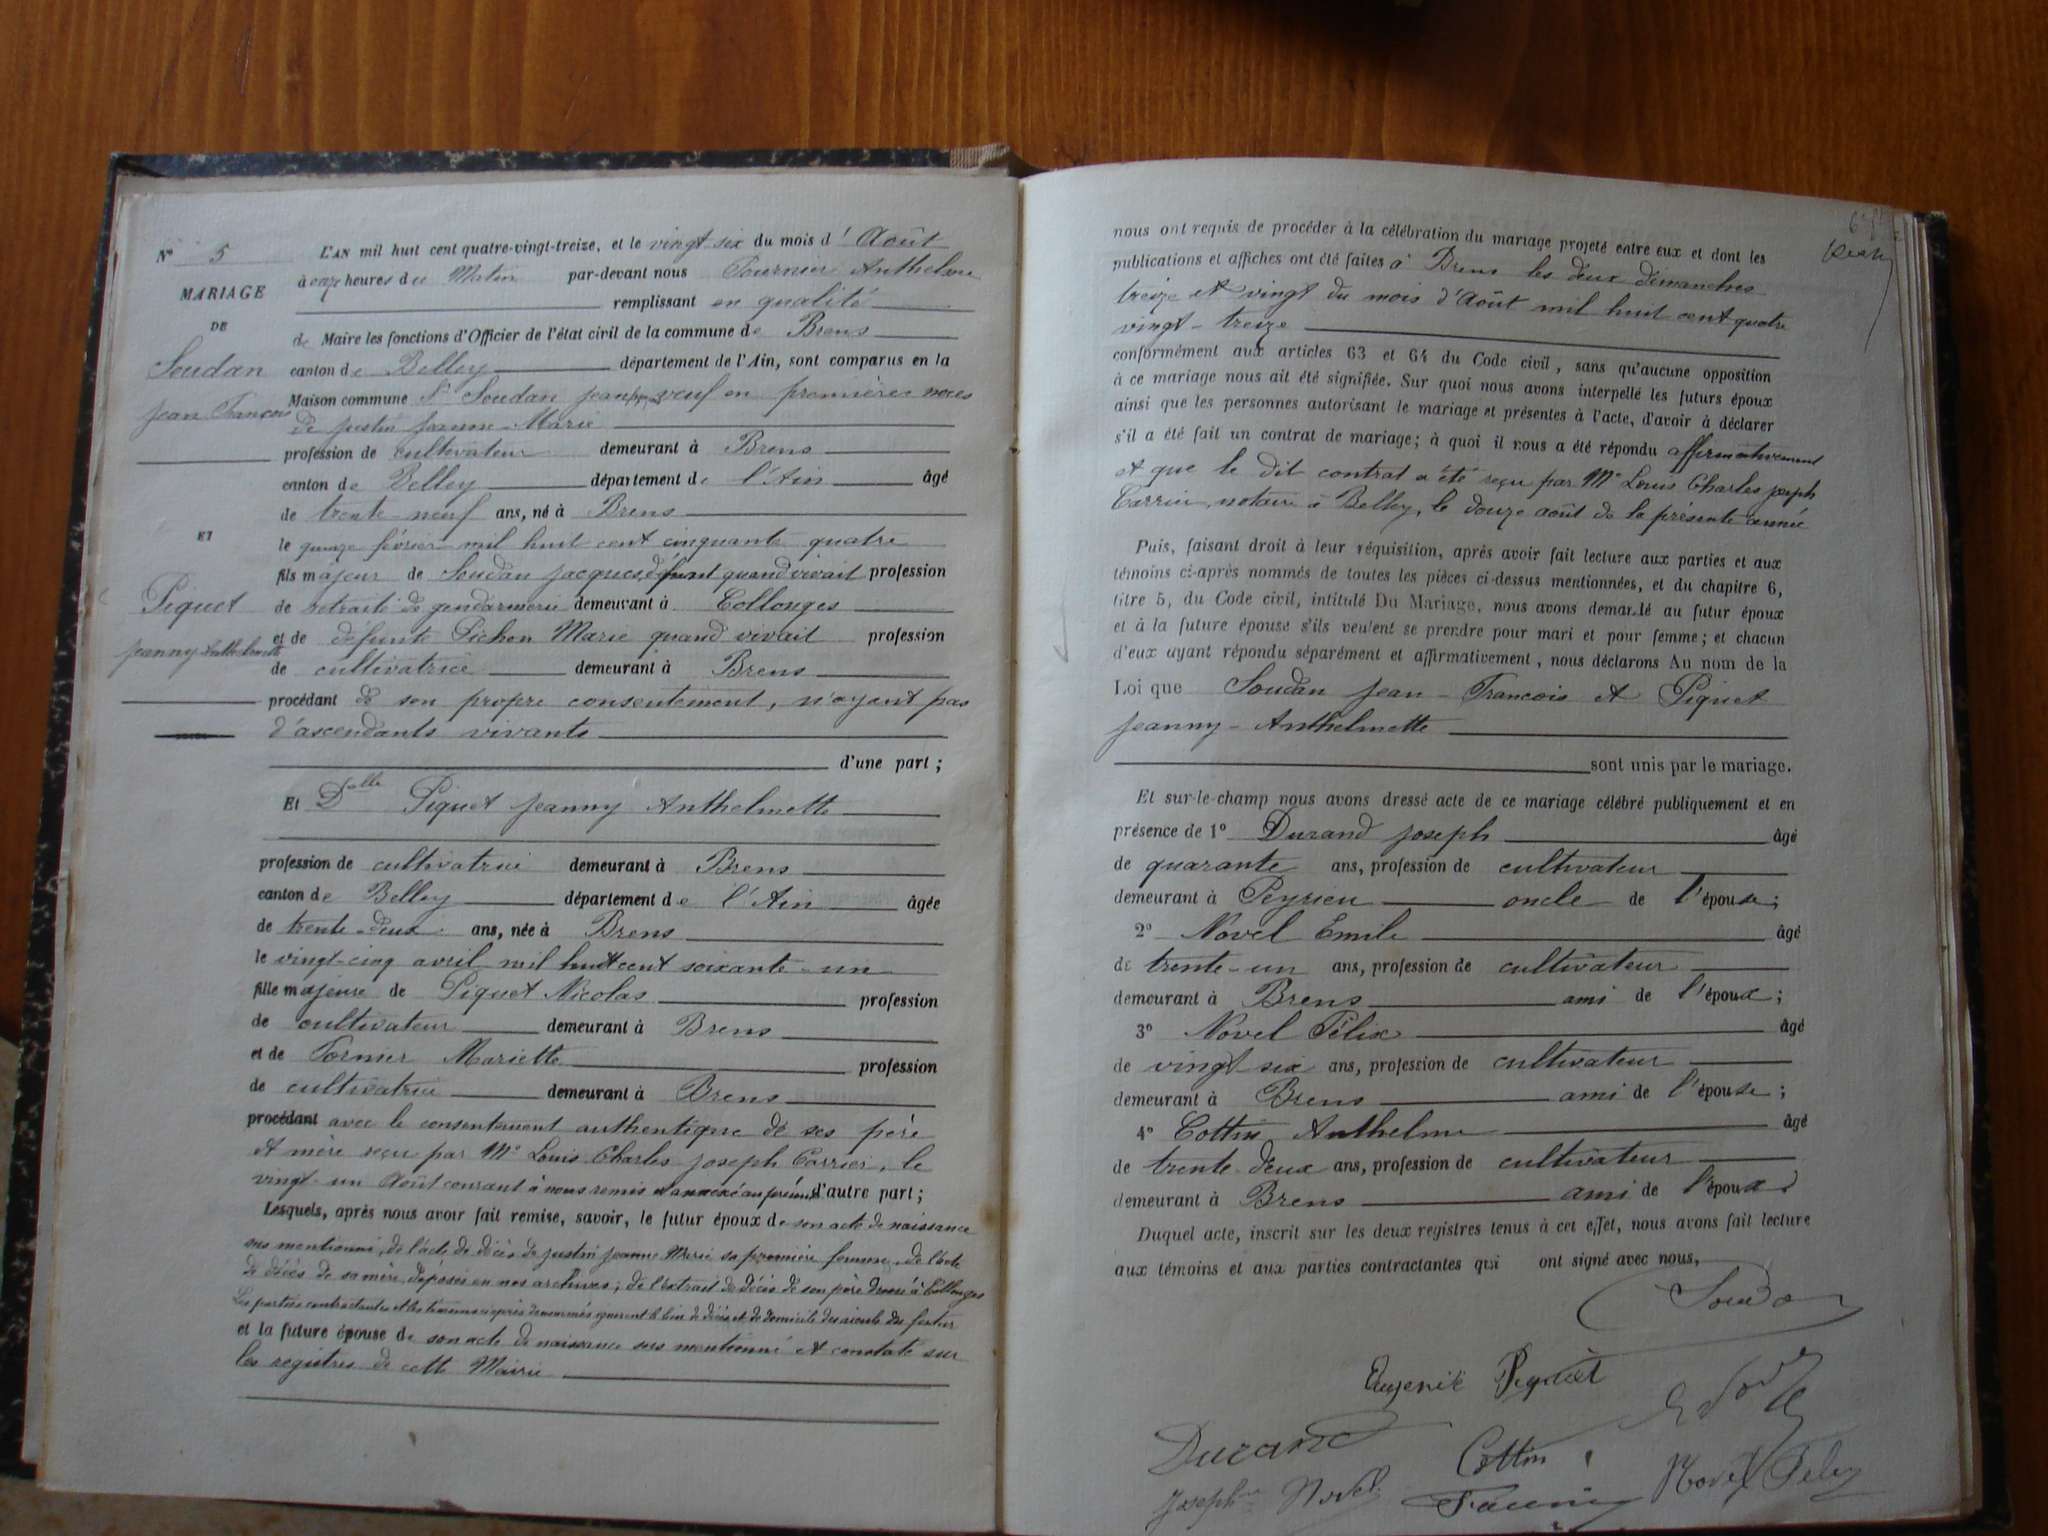 N° 5
MARIAGE
DE
Soudan
Jean François
ET
Piquet
Jeanny Anthelmette
L'AN mil huit cent quatre-vingt-treize, et le vingt six du mois d' Août
à onze heures du Matin par-devant nous Fournier Anthelme
remplissant en qualité
de Maire les fonctions d'Officier de l'état civil de la commune de Brens
canton de Belley département de l'Ain, sont comparus en la
Maison commune Sr Soudan Jean veuf en premières noces
de Justin Jeanne-Marie
profession de cultivateur demeurant à Brens
canton de Belley département de l'Ain âgé
de trente-neuf ans, né à Brens
le quinze février mil huit cent cinquante quatre
fils majeur de Soudan Jacques, défunt quand vivait profession
de retraité de gendarmerie demeurant à Collonges
et de défunte Pichon Marie quand vivait profession
de cultivatrice demeurant à Brens
procédant de son propre consentement, n'ayant pas
d'ascendants vivants
d'une part ;
Et Delle Piquet Jeanny Anthelmette
profession de cultivatrice demeurant à Brens
canton de Belley département de l'Ain âgée
de trente-deux ans, née à Brens
le vingt-cinq avril mil huit cent soixante-un
fille majeure de Piquet Nicolas profession
de cultivateur demeurant à Brens
et de Fornier Mariette profession
de cultivatrice demeurant à Brens
procédant avec le consentement authentique de ses père
et mère reçu par Me Louis Charles Joseph Carrier, le
vingt-un Août courant à nous remis et annexé au présent d'autre part ;
Lesquels, après nous avoir fait remise, savoir, le futur époux de son acte de naissance
sus mentionné, de l'acte de décès de Justin Jeanne Marie sa première femme, de l'acte
de décès de sa mère, déposés en nos archives ; de l'extrait de décès de son père dressé à Collonges
Les parties contractantes et les témoins ci-après dénommés ignorent le lieu de décès et de domicile des aïeuls du futur
et la future épouse de son acte de naissance sus mentionné et constaté sur
les registres de cette Mairie
nous ont requis de procéder à la célébration du mariage projeté entre eux et dont les
publications et affiches ont été faites à Brens les deux dimanches
treize et vingt du mois d'Août mil huit cent quatre
vingt-treize
conformément aux articles 63 et 64 du Code civil, sans qu'aucune opposition
à ce mariage nous ait été signifiée. Sur quoi nous avons interpellé les futurs époux
ainsi que les personnes autorisant le mariage et présentes à l'acte, d'avoir à déclarer
s'il a été fait un contrat de mariage; à quoi il nous a été répondu affirmativement
et que le dit contrat a été reçu par Me Louis Charles Joseph
Carrier, notaire à Belley, le douze août de la présente année
Puis, faisant droit à leur réquisition, après avoir fait lecture aux parties et aux
témoins ci-après nommés de toutes les pièces ci-dessus mentionnées, et du chapitre 6,
titre 5, du Code civil, intitulé Du Mariage, nous avons demandé au futur époux
et à la future épouse s'ils veulent se prendre pour mari et pour femme; et chacun
d'eux ayant répondu séparément et affirmativement, nous déclarons Au nom de la
Loi que Soudan Jean-François et Piquet
Jeanny-Anthelmette
sont unis par le mariage.
Et sur-le-champ nous avons dressé acte de ce mariage célébré publiquement et en
présence de 1° Durand Joseph âgé
de quarante ans, profession de cultivateur
demeurant à Peyrieu oncle de l'épouse ;
2° Novel Emile âgé
de trente-un ans, profession de cultivateur
demeurant à Brens ami de l'époux ;
3° Novel Félix âgé
de vingt six ans, profession de cultivateur
demeurant à Brens ami de l'épouse ;
4° Cottin Anthelme âgé
de trente-deux ans, profession de cultivateur
demeurant à Brens ami de l'époux
Duquel acte, inscrit sur les deux registres tenus à cet effet, nous avons fait lecture
aux témoins et aux parties contractantes qui ont signé avec nous,
Soudan
Eugenie Piquet
Durand
Cottin
Joseph Novel
Novel Felix